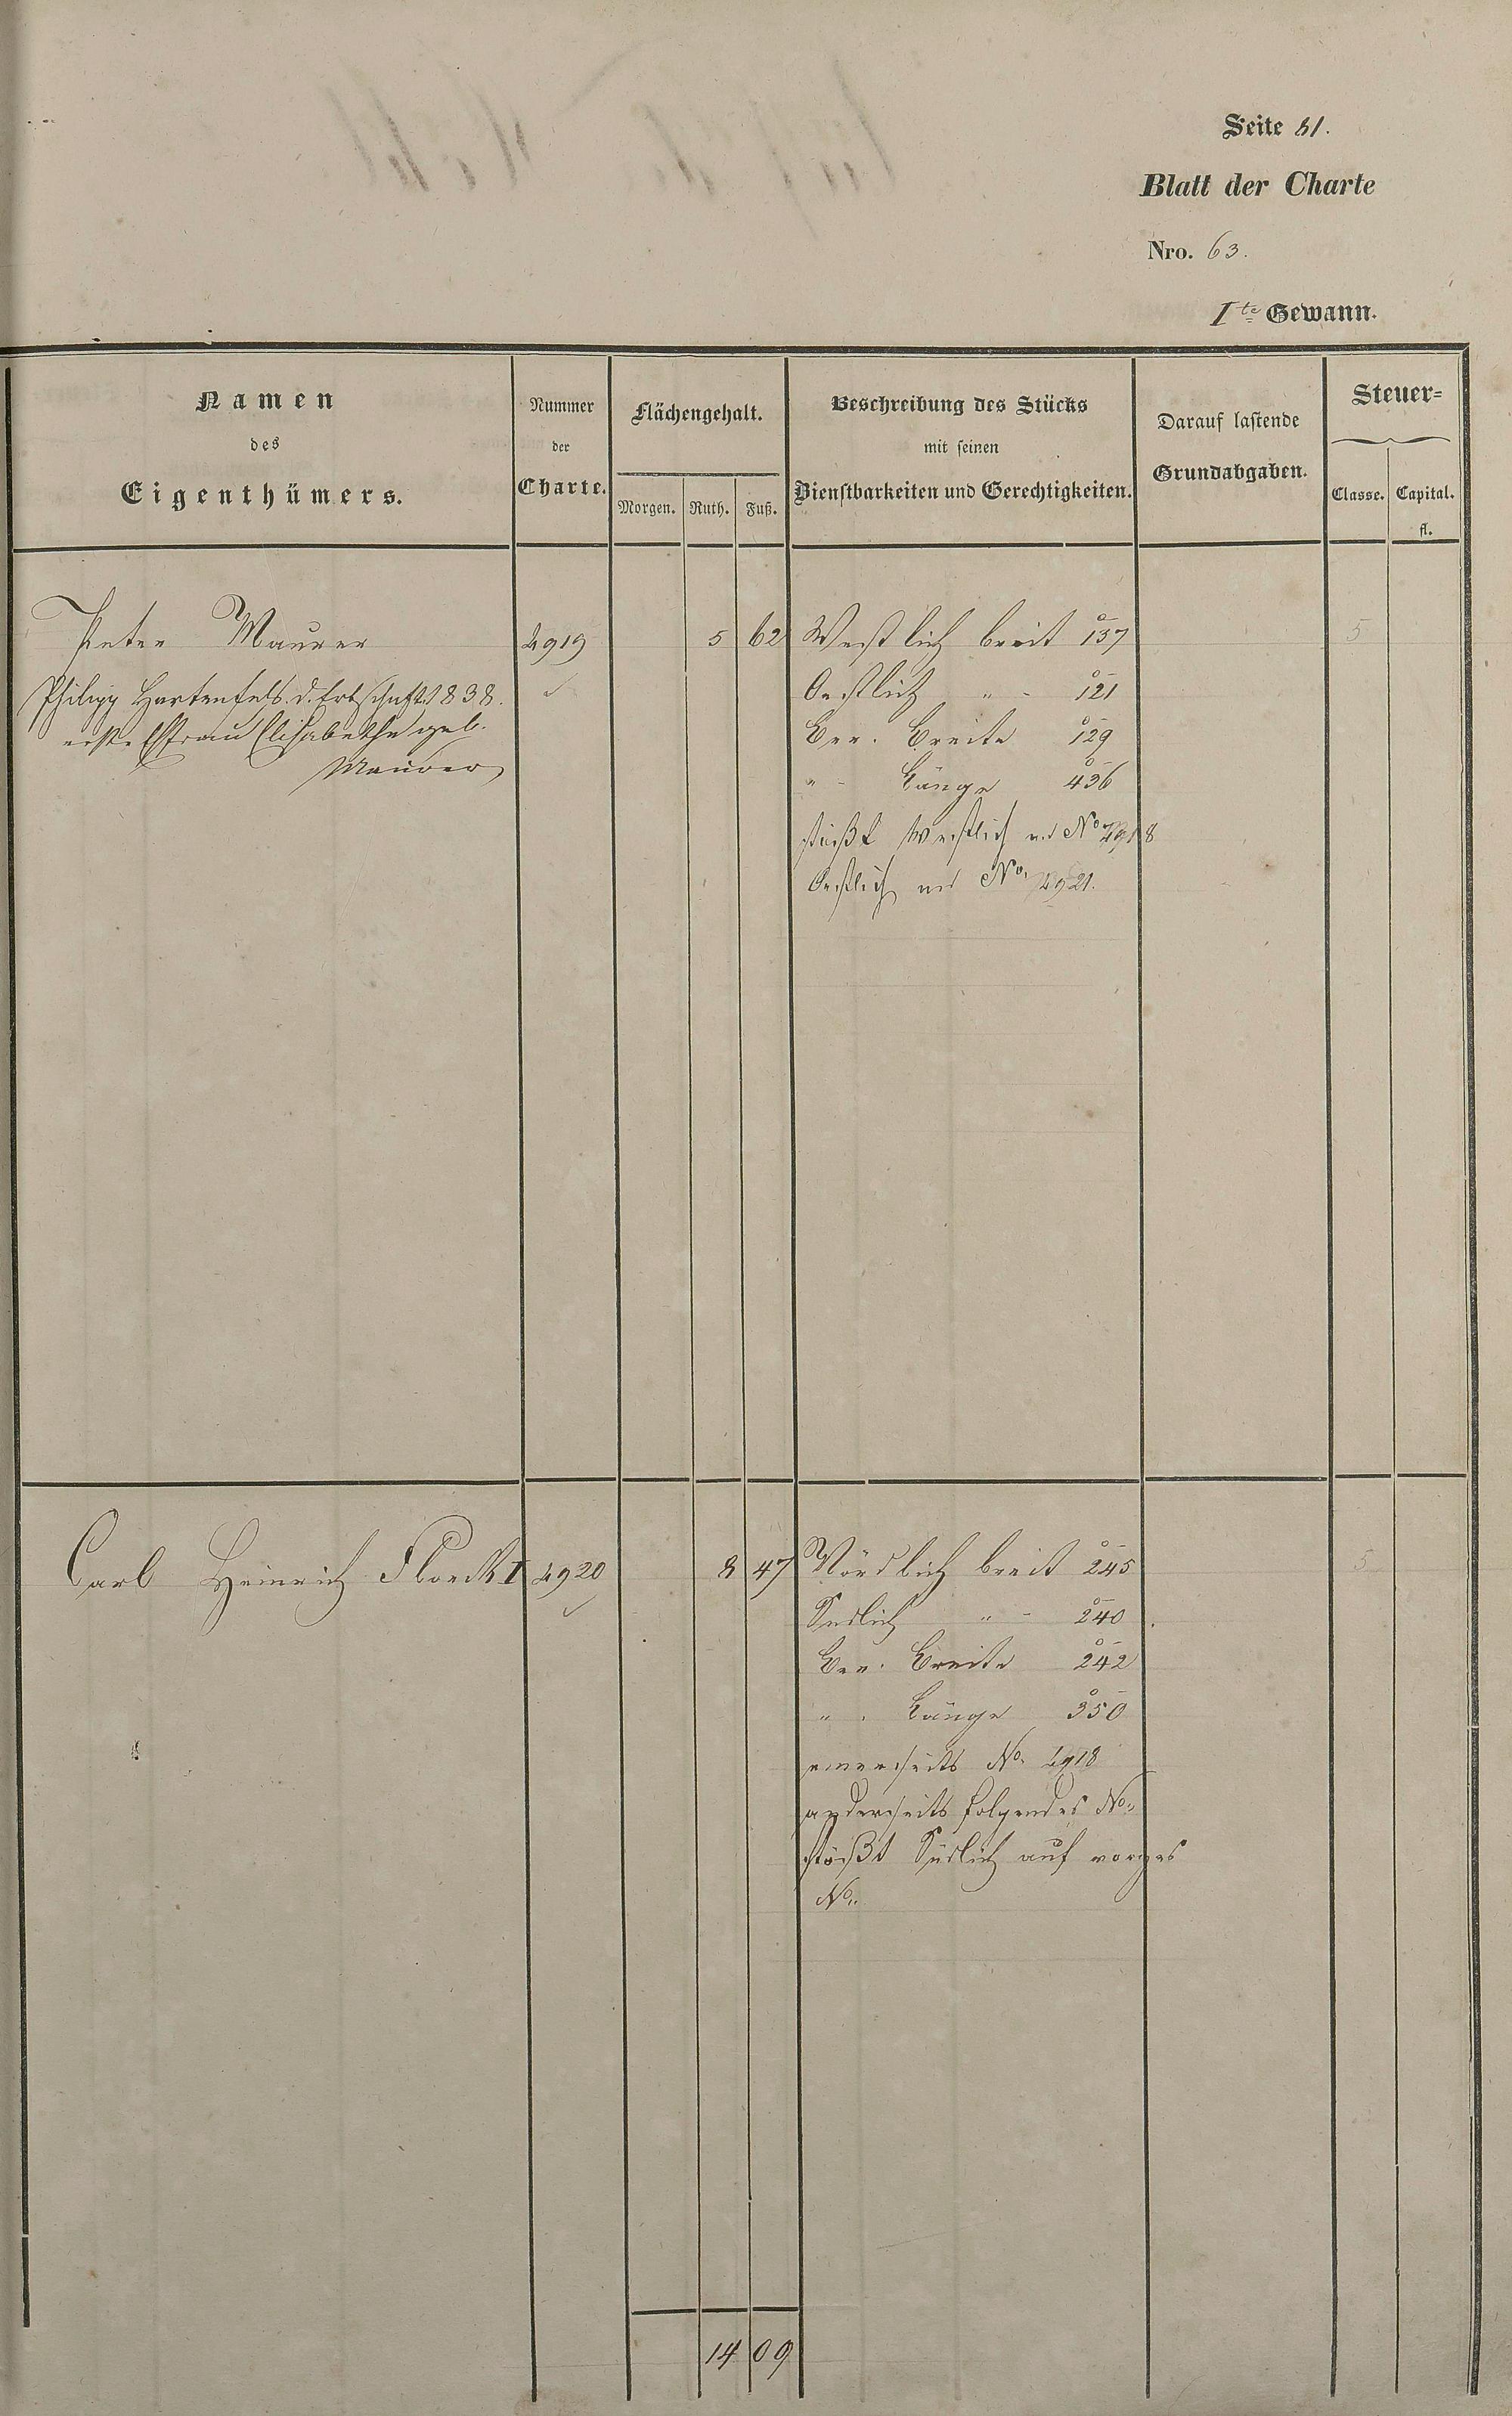 Seite 81.
Blatt der Charte
Nro. 63.
Ite Gewann.
Namen
des
Eigenthümers.
Nummer
der
Charte.
Flächengehalt.
Morgen. Ruth. Fuß.
Beschreibung des Stücks
mit seinen
Dienstbarkeiten und Gerechtigkeiten.
Darauf lastende
Grundabgaben.
Steuer=
Classe. Capital.
fl.
Peter Maurer 4919 5 62 Westlich breit 137 5
Philipp Hartenfels d. Erbschaft 1838.
erste Ehfrau Elisabetha geb.
Maurer
Oestlich " - 121
Ber. Breite 129
" - Länge 436
stößt Westlich auf No 4918
Oestlich auf No. 4921.
Carl Heinrich Floeck I 4920 8 47 Nördlich breit 245 5
Südlich " - 240
Ber. Breite 242
" . Länge 350
einerseits No. 4918
anderseits folgendes No.
stößt Südlich auf voriges
No.
14 09